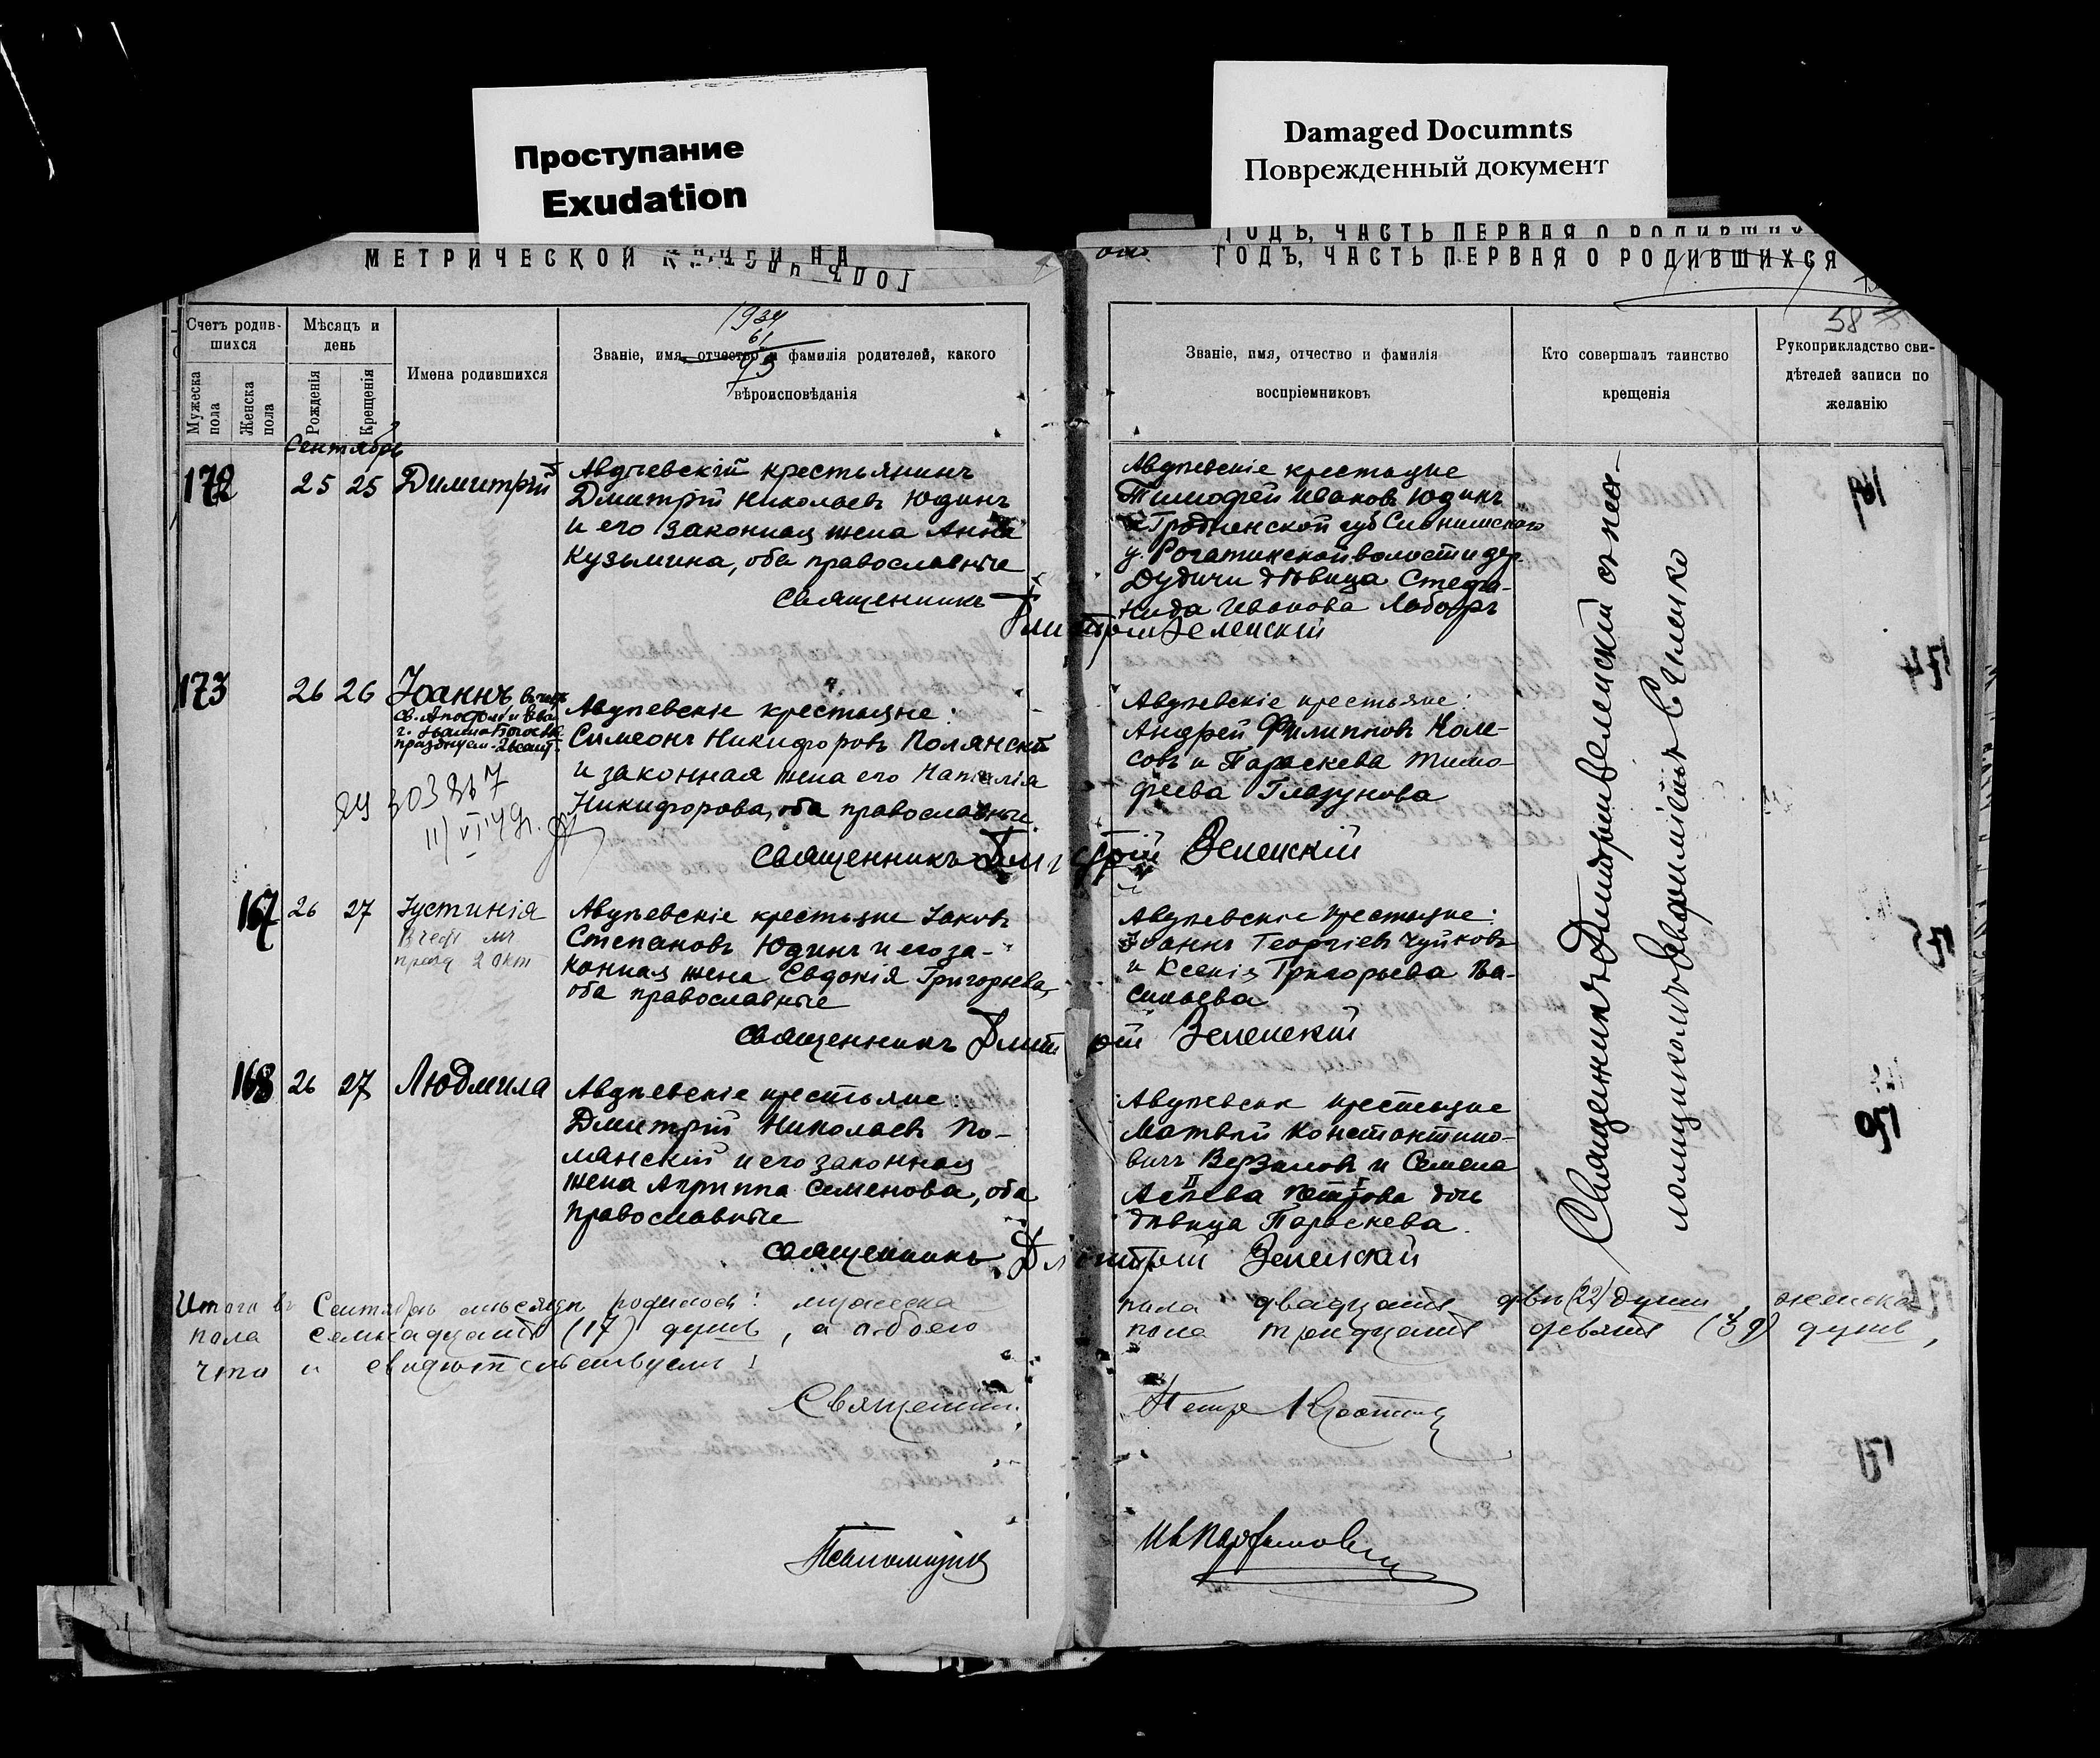 Проступание
Exudation
Damaged Documnts
Поврежденный документ
МЕТРИЧЕСКОЙ КНИГИ НА
ГОДЪ, ЧАСТЬ ПЕРВАЯ О РОДИВШИХСЯ
1934
61
93
58
Счетъ родив-
шихся
Мѣсяцъ и
день
Мужеска
пола
Женска
пола
Рожденія
Крещенія
Имена родившихся
Званіе, имя, отчество и фамилія родителей, какого
вѣроисповѣданія
Званіе, имя, отчество и фамилія
воспріемниковъ
Кто совершалъ таинство
крещенія
Рукоприкладство сви-
дѣтелей записи по
желанію
Сентябрь
172 25 25 Димитрій
Авдѣевскій крестьянинъ
Дмитрій Николаевъ Юдинъ
и его законная жена Анна
Кузьмина, оба православные
Священникъ Дмитрій Зеленскій
Авдѣевскіе крестьяне
Тимофей Ивановъ Юдинъ
и Гродненской губ
у. Рогатинской волости дер.
Дудичи дѣвица Стефа-
нида Иванова
173 26 26 Іоаннъ въ честь
св. Апостола и Еван
г. Іоанна Богосл
праздуем. 26 сент.
ЯЧ 303867
11/VI 49г.
Авдѣевскіе крестьяне:
Симеонъ Никифоровъ Полянскій
и законная жена его Наталія
Никифорова, оба православные.
Священникъ Дмитрій Зеленскій
Авдѣевскіе крестьяне:
Андрей Филипповъ Коле-
совъ и Параскева Тимо-
феева Глазунова
167 26 27 Іустинія
въ честь мч
празд 2 окт
Авдѣевскіе крестьяне Іаковъ
Степановъ Юдинъ и его за-
конная жена Евдокія Григорьева,
оба православные
Священникъ Дмитрій Зеленскій
Авдѣевскіе крестьяне:
Іоаннъ Георгіевъ Чуйковъ
и Ксенія Григорьева Ва-
сильева
168 26 27 Людмила
Авдѣевскіе крестьяне:
Дмитрій Николаевъ По-
лянскій и его законная
жена Агриппа Семенова, оба
православные
Священникъ Дмитрій Зеленскій
Авдѣевскіе крестьяне
Матвѣй Константино-
вичъ и Семена
Петрова дочь
дѣвица Параскева.
Священникъ Димитрій Зеленскій съ пса-
ломщикомъ
Итого въ Сентябрѣ мѣсяцѣ родилось: мужеска пола двадцать двѣ (22) души женска
пола семнадцать (17) душъ, а обоего пола тридцать девять (39) душъ,
что и свидѣтельствуемъ:
Священникъ Петръ
Псаломщикъ